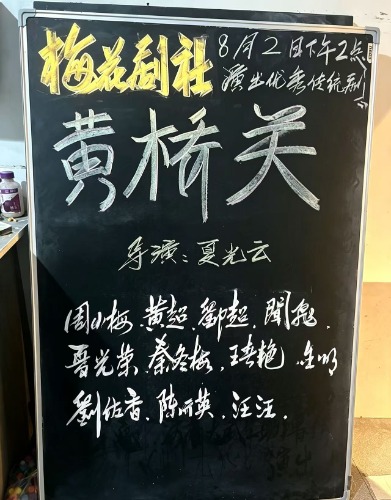 梅花剧社
8月2日下午2点
演出优秀传统剧
黄桥关
导演：夏光云
周小梅、黄超、鄧超、聞兔、
晋光荣、秦冬梅、王春艳、金明
劉佑香、陈丽英、汪汪、